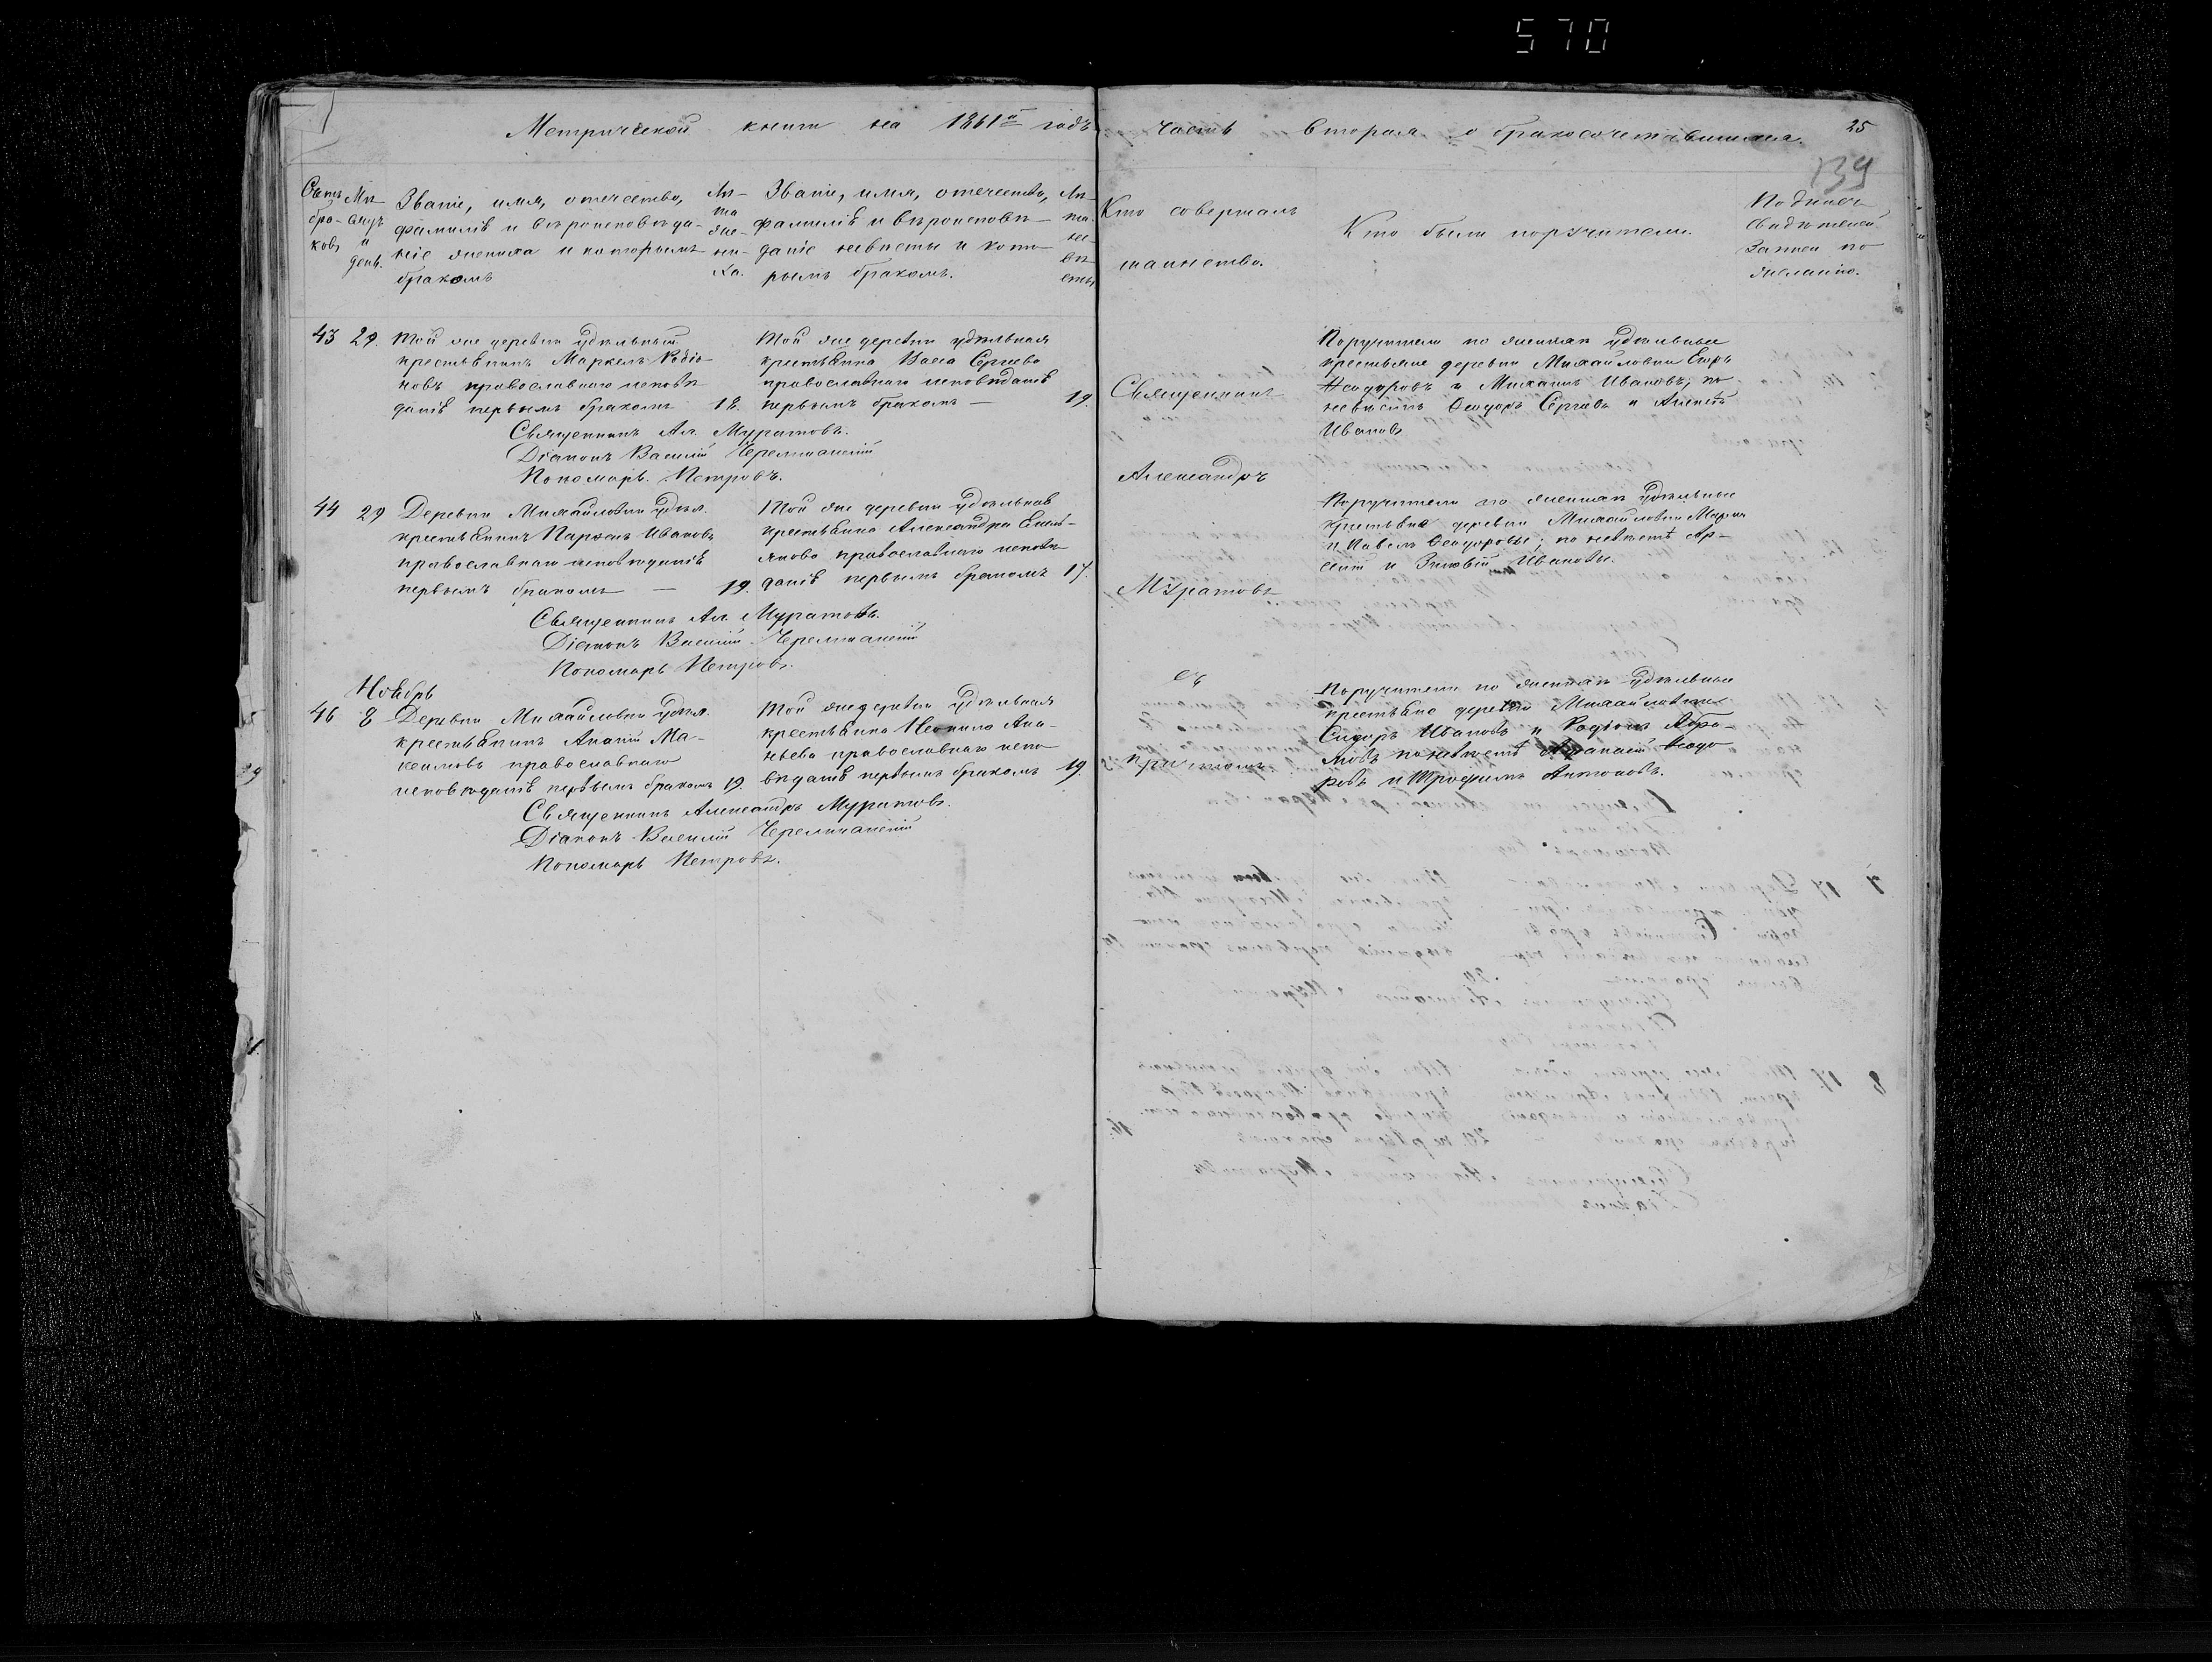 570
Метрической книги на 1861й годъ часть вторая о бракосочетавшихся.
25
139
Счетъ браковъ
Мѣсяцъ и день.
Званіе, имя, отечество, фамилія и вѣроисповѣданіе жениха и которымъ бракомъ
Лѣта жениха.
Званіе, имя, отечество, фамилія и вѣроисповѣданіе невѣсты и которымъ бракомъ.
Лѣта невѣсты
Кто совершалъ таинство.
Кто были поручители.
Подписъ свидѣтелей записи по желанію.
43 29. Той же деревни удѣльный
крестьянинъ Маркелъ Родіо-
новъ православнаго исповѣ
данія первымъ бракомъ 18.
Той же деревни удѣльная
крестьянка Васса Сергеева
православнаго исповѣданія
первымъ бракомъ — 19.
Поручители по женихѣ удѣльные
крестьяне деревни Михайловки Егоръ
Ѳеодоровъ и Михаилъ Ивановъ; по
невѣстѣ Ѳеодоръ Сергеевъ и Алексѣй
Ивановъ
Священникъ Ал. Муратовъ.
Діаконъ Василій Черемшанскій
Пономарь Петровъ.
44 29 Деревни Михайловки удѣл.
крестьянинъ Парѳенъ Ивановъ
православнаго исповѣданія
первымъ бракомъ — 19.
Той же деревни удѣльная
крестьянка Александра Емель-
янова православнаго исповѣ
данія первымъ бракомъ 17.
Поручители по женихѣ удѣльные
крестьяне деревни Михайловки
и Павелъ Ѳеодоровы; по невѣстѣ Ар-
сеній и Зиновій Ивановы.
Священникъ Ал. Муратовъ.
Діаконъ Василій Черемшанскій
Пономарь Петровъ.
Ноябрь
46 8 Деревни Михайловки удѣл.
крестьянинъ Ананій Ма-
ксимовъ православнаго
исповѣданія первымъ бракомъ 19.
Той же деревни удѣльная
крестьянка Неонила Ана-
ньева православнаго испо
вѣданія первымъ бракомъ 19.
Поручители по женихѣ удѣльные
крестьяне деревни Михайловки
Сидоръ Ивановъ и Родіонъ Абра-
мовъ по невѣстѣ Ѳеодо
ровъ и Трофимъ Антоновъ.
Священникъ Александръ Муратовъ.
Діаконъ Василій Черемшанскій
Пономарь Петровъ.
Священникъ
Александръ
Муратовъ
съ
причтомъ